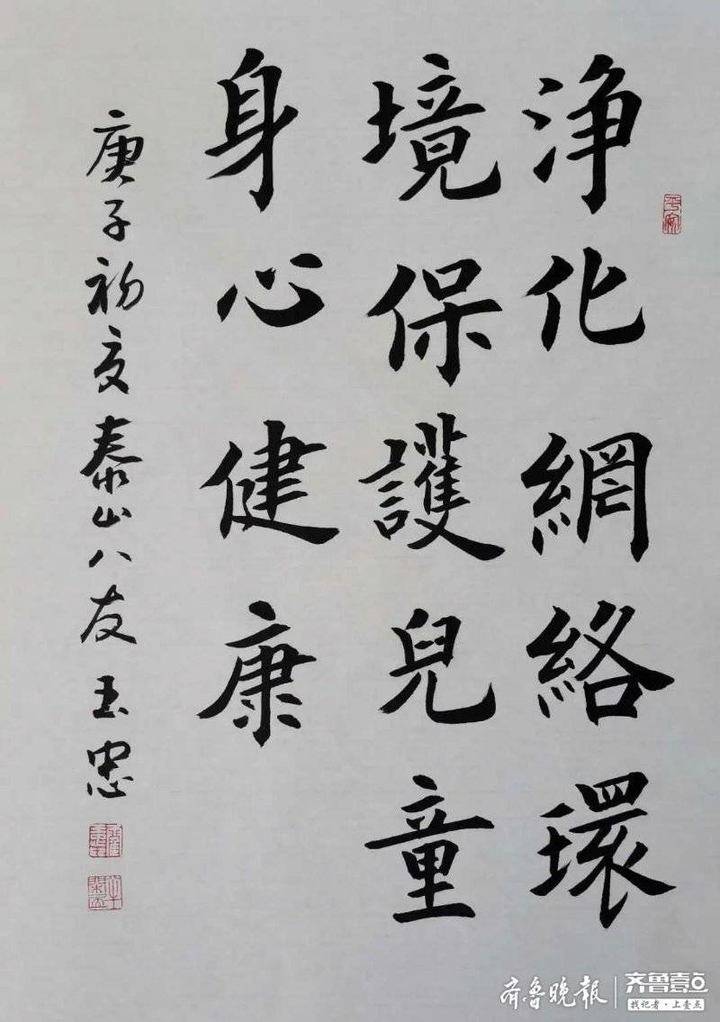 浄化網絡環
境保護兒童
身心健康
庚子初夏泰山八友玉忠
齐魯晚報
齐鲁壹点
找记者·上壹点